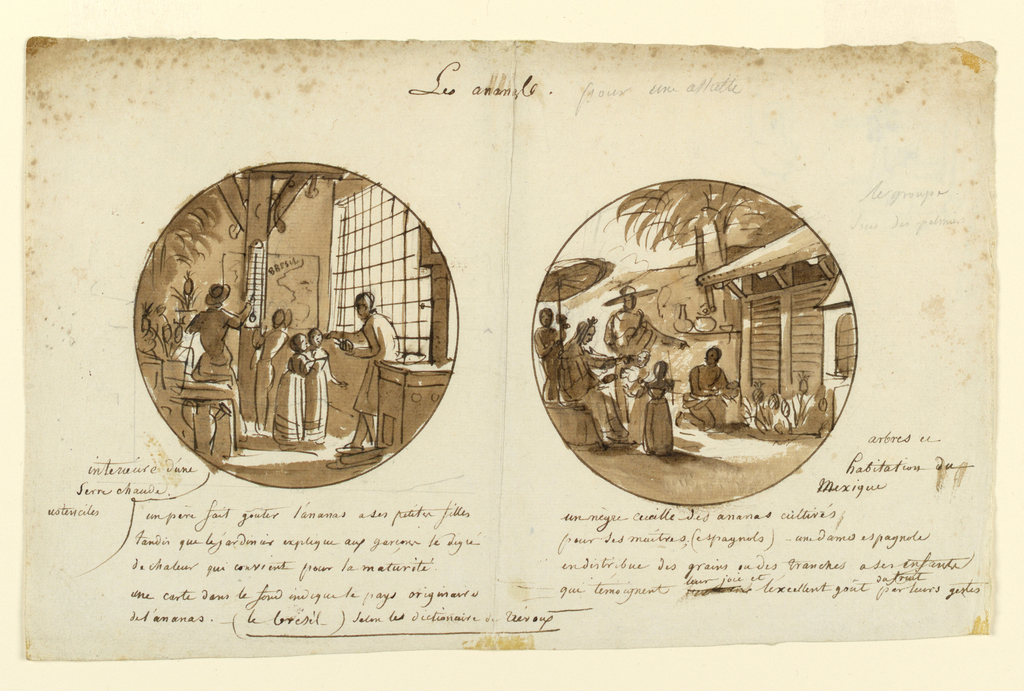 Les ananas.
pour une assiette
le groupe
sous des palmiers
BRESIL
interieure d'une
Serre chaude.
ustenciles
un père fait gouter l'ananas a ses petites filles
tandis que le jardinier explique aux garçons le degré
de chaleur qui convient pour la maturité.
une carte dans le fond indique le pays originaire
de l'ananas. — (le brésil) selon les dictionaire de Trévoux
arbres et
habitation du
Mexique
un nègre cueille des ananas cultivés
pour ses maitres, (espagnols) - une dame espagnole
en distribue des grains ou des tranches a ses enfants
qui témoignent leur joie et l'excellent goût du fruit par leurs gestes